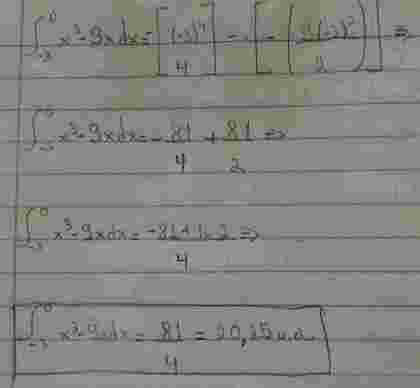 ∫₋₃⁰ x³-9xdx = [(-3)⁴/4] - [-(9(-3)²/2)] ⇒
∫₋₃⁰ x³-9xdx = -81/4 + 81/2 ⇒
∫₋₃⁰ x³-9xdx = -81+162/4 ⇒
∫₋₃⁰ x³-9xdx = 81/4 = 20,25 u.a.